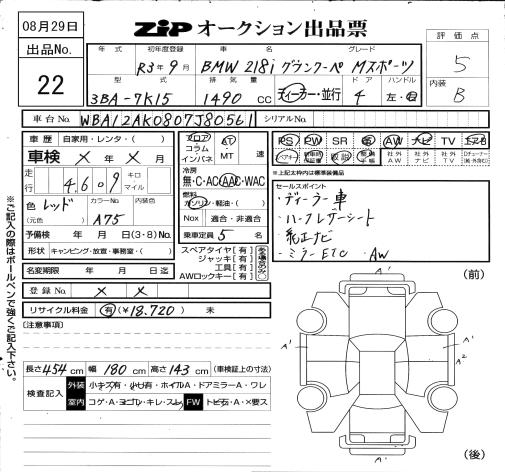 08月29日
ZIP オークション出品票
出品No. 22
評価点 5
内装 B
年式 初年度登録 車名 グレード
R3年9月 BMW 218i グランクーペ Mスポーツ
型式 排気量 ドア ハンドル
3BA-7K15 1490 CC ディーラー・並行 4 左・右
車台No. WBA12AK0807J80561 シリアルNo.
車歴 自家用・レンタ・( )
車検 × 年 × 月
走行 4.6.0 9 キロ マイル
色 レッド カラーNo. 内装色
(元色) A75
予備検 年 月 日(3・8)No.
形状 キャンピング・放置・事務室・( )
名変期限 年 月 日迄
フロア コラム インパネ
AT MT 速
冷房 無・C・AC・AAC・WAC
燃料 ガソリン・軽油・( )
Nox 適合・非適合
乗車定員 5 名
スペアタイヤ[有]
ジャッキ[有]
工具[有]
AWロックキー[有]
PS PW SR 革 AW ナビ TV エアB
取説 社外AW 社外ナビ 社外TV
※上記太枠内は標準装備品
セールスポイント
・ディーラー車
・ハーフレザーシート
・純正ナビ
・ミラーETC ・AW
登録No. × ×
リサイクル料金 有(¥18.720) 未
[注意事項]
長さ 454 cm 幅 180 cm 高さ 143 cm (車検証上の寸法)
検査記入 外装 小キズ有・小ヒ有・ホイルA・ドアミラーA・ワレ
室内 コゲ・A・ヨゴレ・キレ・スレ FW トビ石・A・×要ス
(前)
A'
A' A'
A2
A'
(後)
※ご記入の際はボールペンで強くご記入下さい。